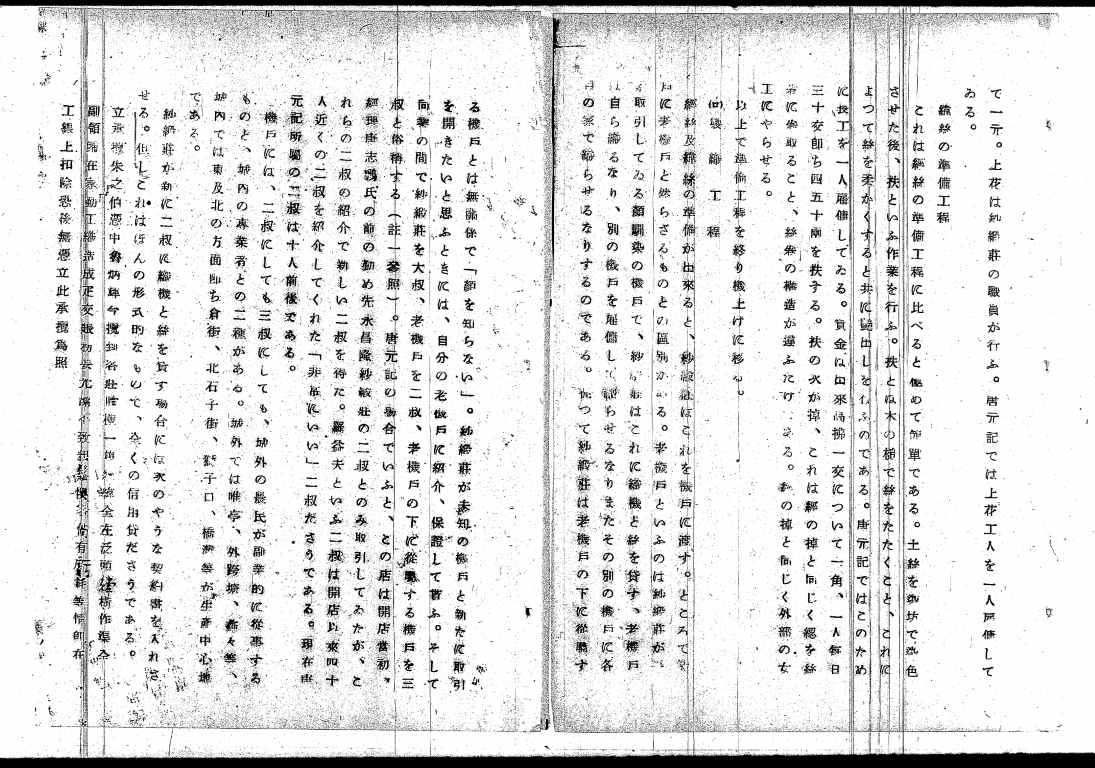 て一元。上花は紗緞荘の職員が行ふ。唐元記では上花工人を一人雇傭して
ゐる。
緯絲の準備工程
これは經絲の準備工程に比べると極めて簡單である。土絲を染坊で染色
させた後、扶といふ作業を行ふ。扶とは木の棒で絲をたたくこと、これに
よつて絲を柔かくすると共に艶出しを行ふのである。唐元記ではこのため
に長工を一人雇傭してゐる。賃金は出來高拂一交について一角、一人每日
三十交卽ち四五十兩を扶する。扶の次が掉、これは經の掉と同じく總を絲
巻に巻取ること、絲巻の構造が違ふだけである。この掉と同じく外部の女
工にやらせる。
以上で準備工程を終り機上げに移る。
織工程
經絲及緯絲の準備が出來ると、紗緞荘はこれを機戶に渡す。ところで
に老機戶と然らざるものとの區別がある。老機戶といふのは紗緞荘が
取引してゐる顔馴染の機戶で、紗緞荘はこれに織機と絲を貸す、老機戶
自ら織るなり、別の機戶を雇傭して織らせるなりまたその別の機戶に各
の家で織らせるなりするのである。從つて紗緞荘は老機戶の下に從屬す
る機戶とは無關係で「顔を知らない」。紗緞荘が未知の機戶と新たに取引
を開きたいと思ふときには、自分の老機戶に紹介、保證して貰ふ。そして
同業の間で紗緞荘を大叔、老機戶を二叔、老機戶の下に從屬する機戶を三
叔と俗稱する(註一參照)。唐元記の場合でいふと、この店は開店當初、
經理唐志鵠氏の前の勤め先永昌隆紗緞荘の二叔とのみ取引してゐたが、こ
れらの二叔の紹介で新しい二叔を得た。羅谷夫といふ二叔は開店以來四十
人近くの二叔を紹介してくれた「非常にいい」二叔ださうである。現在唐
元記所屬の二叔は十人前後である。
機戶には、二叔にしても三叔にしても、城外の農民が副業的に從事する
ものと、城內の專業者との二種がある。城外では唯亭、外跨塘、
城內では東及北の方面卽ち倉街、北石子街、獅子口、橋灣等が生產中心地
である。
紗緞荘が新に二叔に織機と絲を貸す場合には次のやうな契約書を入れさ
せる。但しこれはほんの形式的なもので、全くの信用貸ださうである。
立承攬朱之伯憑中魯炳輝今攬到
副領歸在家勤工織造成疋交賬
工銀上扣除恐後無憑立此承攬爲照